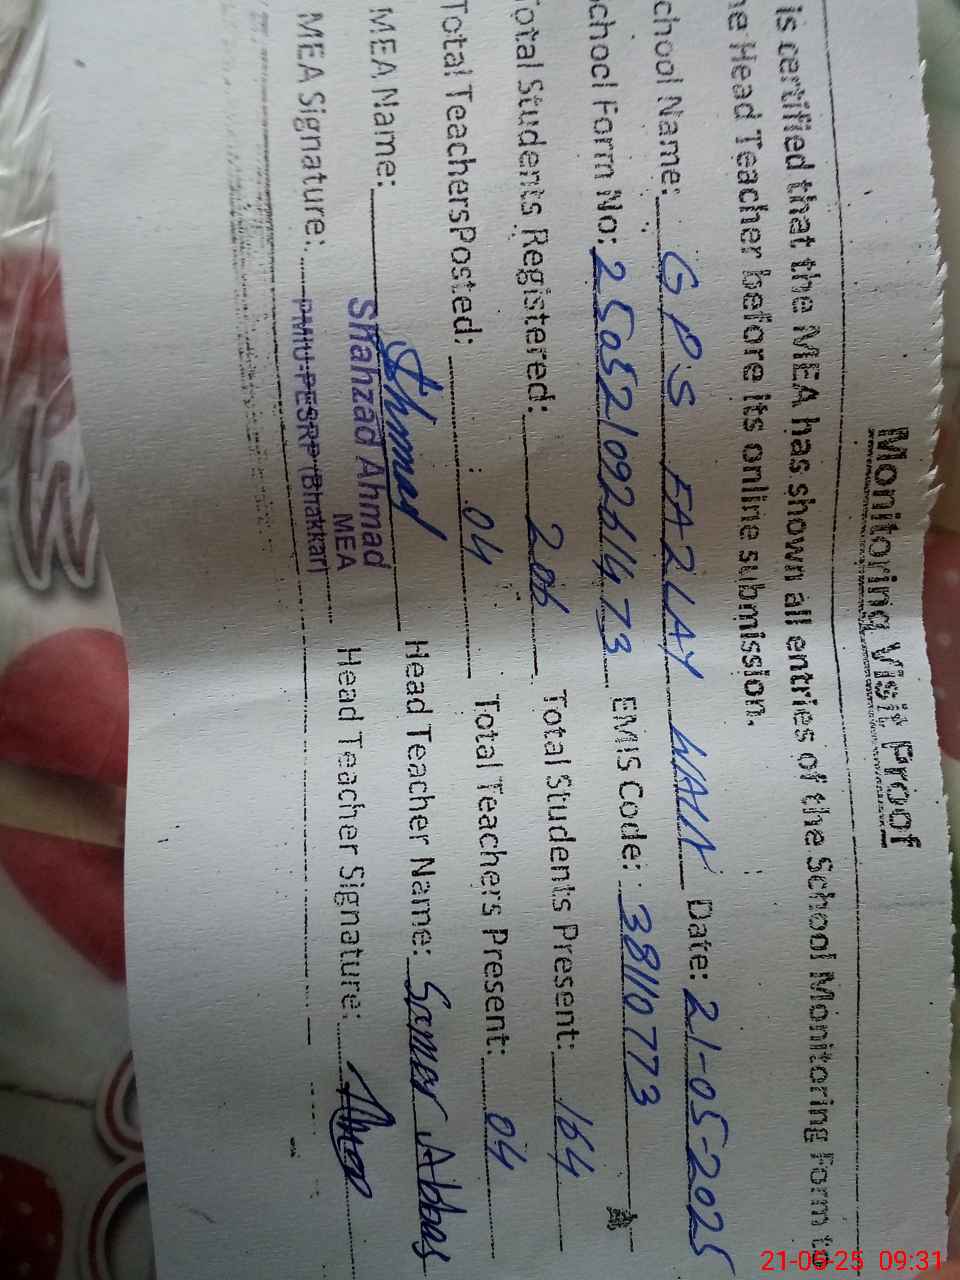 Monitoring Visit Proof
is certified that the MEA has shown all entries of the School Monitoring Form to
he Head Teacher before its online submission.
chool Name: GPS FAZLAY WALA Date: 21-05-2025
chool Form No: 25052109261473 EMIS Code: 38110773
otal Students Registered: 206 Total Students Present: 164
Total TeachersPosted: 04 Total Teachers Present: 04
MEA Name: Shahzad Ahmad Head Teacher Name: Samar Abbas
MEA
MEA Signature: PMIU-PESRP (Bhakkar) Head Teacher Signature:
21-05-25 09:31